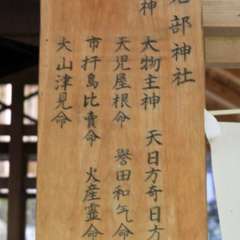 部神社
神
大物主神 天日方奇日方
天児屋根命 誉田和気命
市杵島比賣命 火産霊命
大山津見命